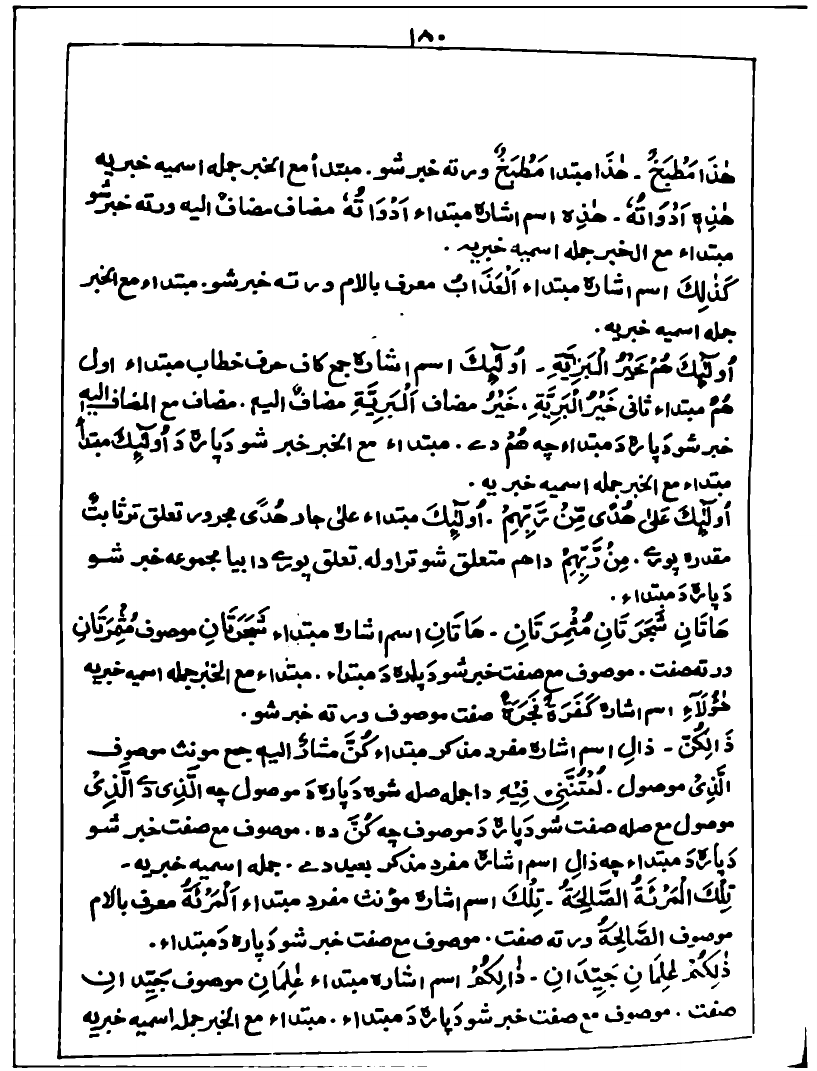 ۱۸۰
هٰذَا مَطْبَخٌ ـ هٰذَا مبتدا مَطْبَخٌ ورته خبر شو . مبتدأ مع الخبر جمله اسمیه خبریه
هٰذِہٖ اَدْوَاتُهٗ ـ هٰذِہ اسم اشارہ مبتداء اَدْوَاتُهٗ مضاف مضافٌ الیه ورته خبر شو
مبتداء مع الخبر جمله اسمیه خبریه .
کَذٰلِكَ اسم اشارہ مبتداء اَلْعَذَابُ معرف بالام ورته خبر شو . مبتداء مع الخبر
جمله اسمیه خبریه .
اُولٰٓئِكَ هُمْ خَیْرُ الْبَرِیَّةِ ـ اُولٰٓئِكَ اسم اشارہ جمع کاف حرف خطاب مبتداء اول
هُمْ مبتداء ثانی خَیْرُ الْبَرِیَّةِ ، خَیْرُ مضاف اَلْبَرِیَّةِ مضافٌ الیه . مضاف مع المضاف الیه
خبر شو دَپارہ دَ مبتداء چه هُمْ دے . مبتداء مع الخبر خبر شو دَپارہ دَ اُولٰٓئِكَ مبتدأ
مبتداء مع الخبر جمله اسمیه خبریه .
اُولٰٓئِكَ عَلٰی هُدًی مِّنْ رَّبِّهِمْ . اُولٰٓئِكَ مبتداء علیٰ جار هُدًی مجرور تعلق ترثابتٌ
مقدرہ پورے . مِنْ رَّبِّهِمْ داهم متعلق شو تراوله . تعلق پورے دا بیا مجموعه خبر شو
دَپارہ دَ مبتداء .
هَاتَانِ شَجَرَتَانِ مُثْمِرَتَانِ ـ هَاتَانِ اسم اشارہ مبتداء شَجَرَتَانِ موصوف مُثْمِرَتَانِ
ورته صفت . موصوف مع صفت خبر شو دَپارہ دَ مبتداء . مبتداء مع الخبر جمله اسمیه خبریه
هٰؤُلَآءِ اسم اشارہ کَفَرَةٌ فَجَرَةٌ صفت موصوف ورته خبر شو .
ذَالِکُنَّ ـ ذالِ اسم اشارہ مفرد مذکر مبتداء کُنَّ مشارٌ الیه جمع مونث موصوف
الَّذِیْ موصول . لُمْتُنَّنِیْ فِیْهِ دا جمله صله شوہ دَپارہ دَ موصول چه الَّذِی دَے الَّذِیْ
موصول مع صله صفت شو دَپارہ دَ موصوف چه کُنَّ دہ . موصوف مع صفت خبر شو
دَپارہ دَ مبتداء چه ذالِ اسم اشارہ مفرد مذکر بعید دے . جمله اسمیه خبریه ـ
تِلْكَ الْمَرْئَةُ الصَّالِحَةُ ـ تِلْكَ اسم اشارہ مؤنث مفرد مبتداء اَلْمَرْئَةُ معرف بالام
موصوف الصَّالِحَةُ ورته صفت . موصوف مع صفت خبر شو دَپارہ دَ مبتداء .
ذٰلِکُمْ غُلِمَانِ جَیِّدَانِ ـ ذٰالِکُمْ اسم اشارہ مبتداء غُلِمَانِ موصوف جَیِّدَانِ
صفت . موصوف مع صفت خبر شو دَپارہ دَ مبتداء . مبتداء مع الخبر جمله اسمیه خبریه